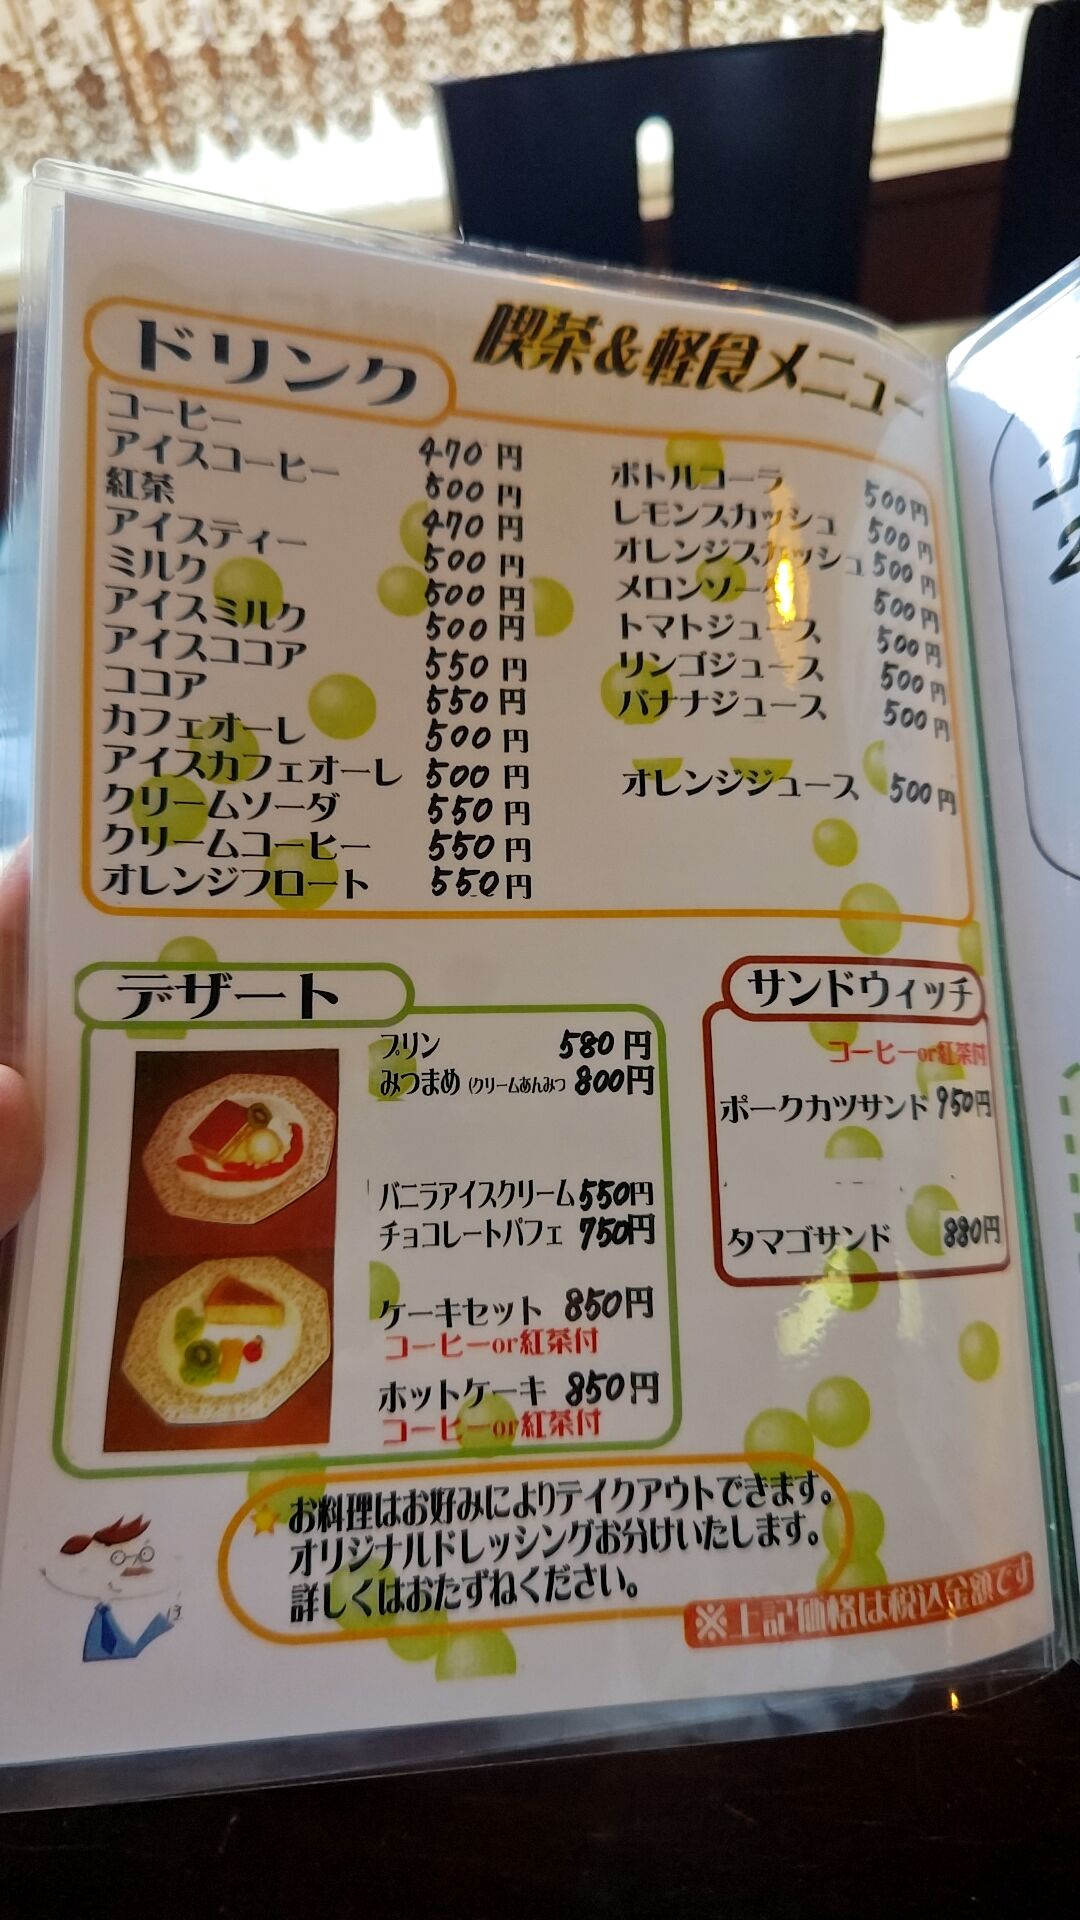 喫茶&軽食メニュー
ドリンク
コーヒー 470円
アイスコーヒー 500円
紅茶 470円
アイスティー 500円
ミルク 500円
アイスミルク 500円
アイスココア 550円
ココア 550円
カフェオーレ 500円
アイスカフェオーレ 500円
クリームソーダ 550円
クリームコーヒー 550円
オレンジフロート 550円
ボトルコーラ 500円
レモンスカッシュ 500円
オレンジスカッシュ 500円
メロンソーダ 500円
トマトジュース 500円
リンゴジュース 500円
バナナジュース 500円
オレンジジュース 500円
デザート
プリン 580円
みつまめ(クリームあんみつ 800円
バニラアイスクリーム 550円
チョコレートパフェ 750円
ケーキセット 850円
コーヒーor紅茶付
ホットケーキ 850円
コーヒーor紅茶付
サンドウィッチ
コーヒーor紅茶付
ポークカツサンド 950円
タマゴサンド 880円
お料理はお好みによりテイクアウトできます。
オリジナルドレッシングお分けいたします。
詳しくはおたずねください。
※上記価格は税込金額です